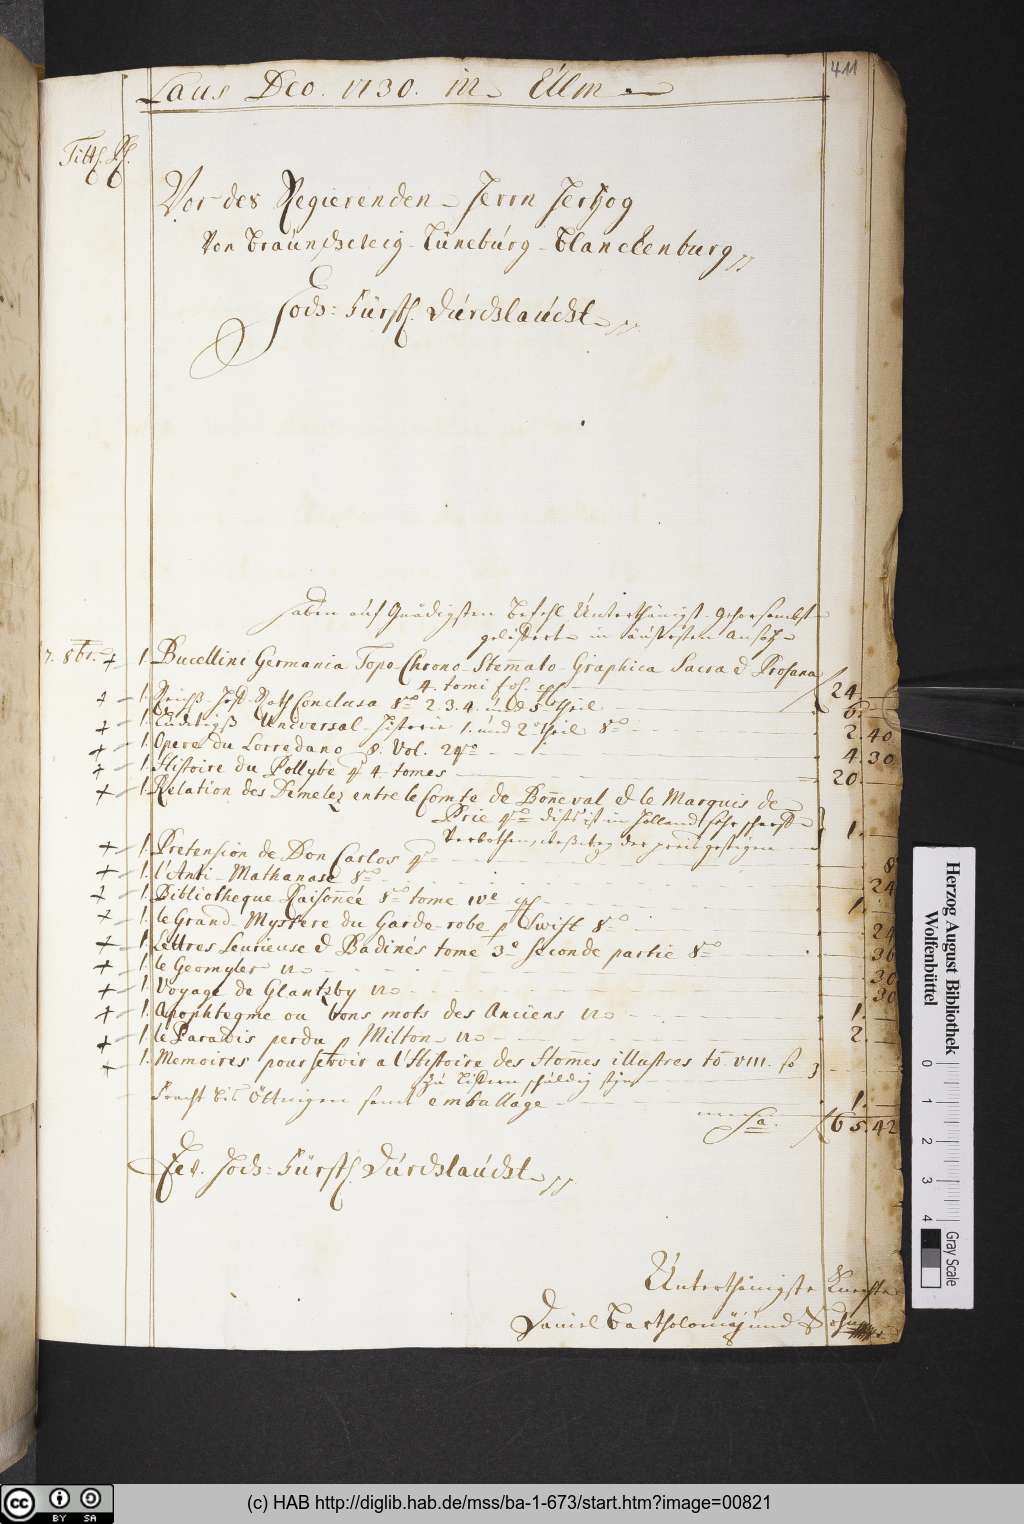 411
Laus Deo. 1730. in Ullm
Titl. Pl.
Vor des Regierenden Herrn Hertzog
Von Braunschweig-Lüneburg-Blanckenburg
Hoch-Fürstl. Durchlaucht
haben auf Gnädigsten Befehl Unterthänigst-gehorsambst
geliefert in
7. 8br. + 1. Bucellini Germania Topo-Chrono-Stem̄ato-Graphica Sacra & Profana
4. tomi fol. 24.
+ 1. Reichß Hof-Rath Conclusa 8vo 2. 3. 4. und 5 Theil 6.
+ 1. Ludwigß Universal-Historie 1. und 2te Theil 8vo 2. 40
+ 1. Opere du Lorredano 8. Vol. 24mo 4. 30
+ 1. Histoire du Pollybe 4to 4 tomes 20.
+ 1. Relation des Demelez entre le Comte de Bon̄eval & le Marquis de
Prie 4to dists ist in Holland sehr scharff
Verbothen, der 1.
+ 1. Pretension de Don Carlos 4to 8
+ 1. l'Anti-Mathanase 8vo 24
+ 1. Bibliotheque Raison̄ée 8vo tome IVe 1.
+ 1. le Grand-Mystere du Garde-robe p Swift 8vo 24
+ 1. Lettres serieuse & Badinés tome 3e seconde partie 8vo 36
+ 1. le Geomyler 12o 30
+ 1. Voyage de Glantzby 12o 30
+ 1. Apophtegme ou bons mots des Anciens 12o 1.
+ 1. le Paradis perdu p Milton 12o 2.
+ 1. Memoires pour servoir a l'Histoire des Hom̄es illustres to. VIII. so
zu liefern schuldig
Fracht bis Öttingen samt emballage 1.
Sa. 65. 42
Ew. Hoch-Fürstl. Durchlaucht
Unterthänigste Knechte
Daniel Bartholomäj und Sohn
Herzog August Bibliothek
Wolfenbüttel
0 1 2 3 4
Gray Scale
cc BY SA
(c) HAB http://diglib.hab.de/mss/ba-1-673/start.htm?image=00821